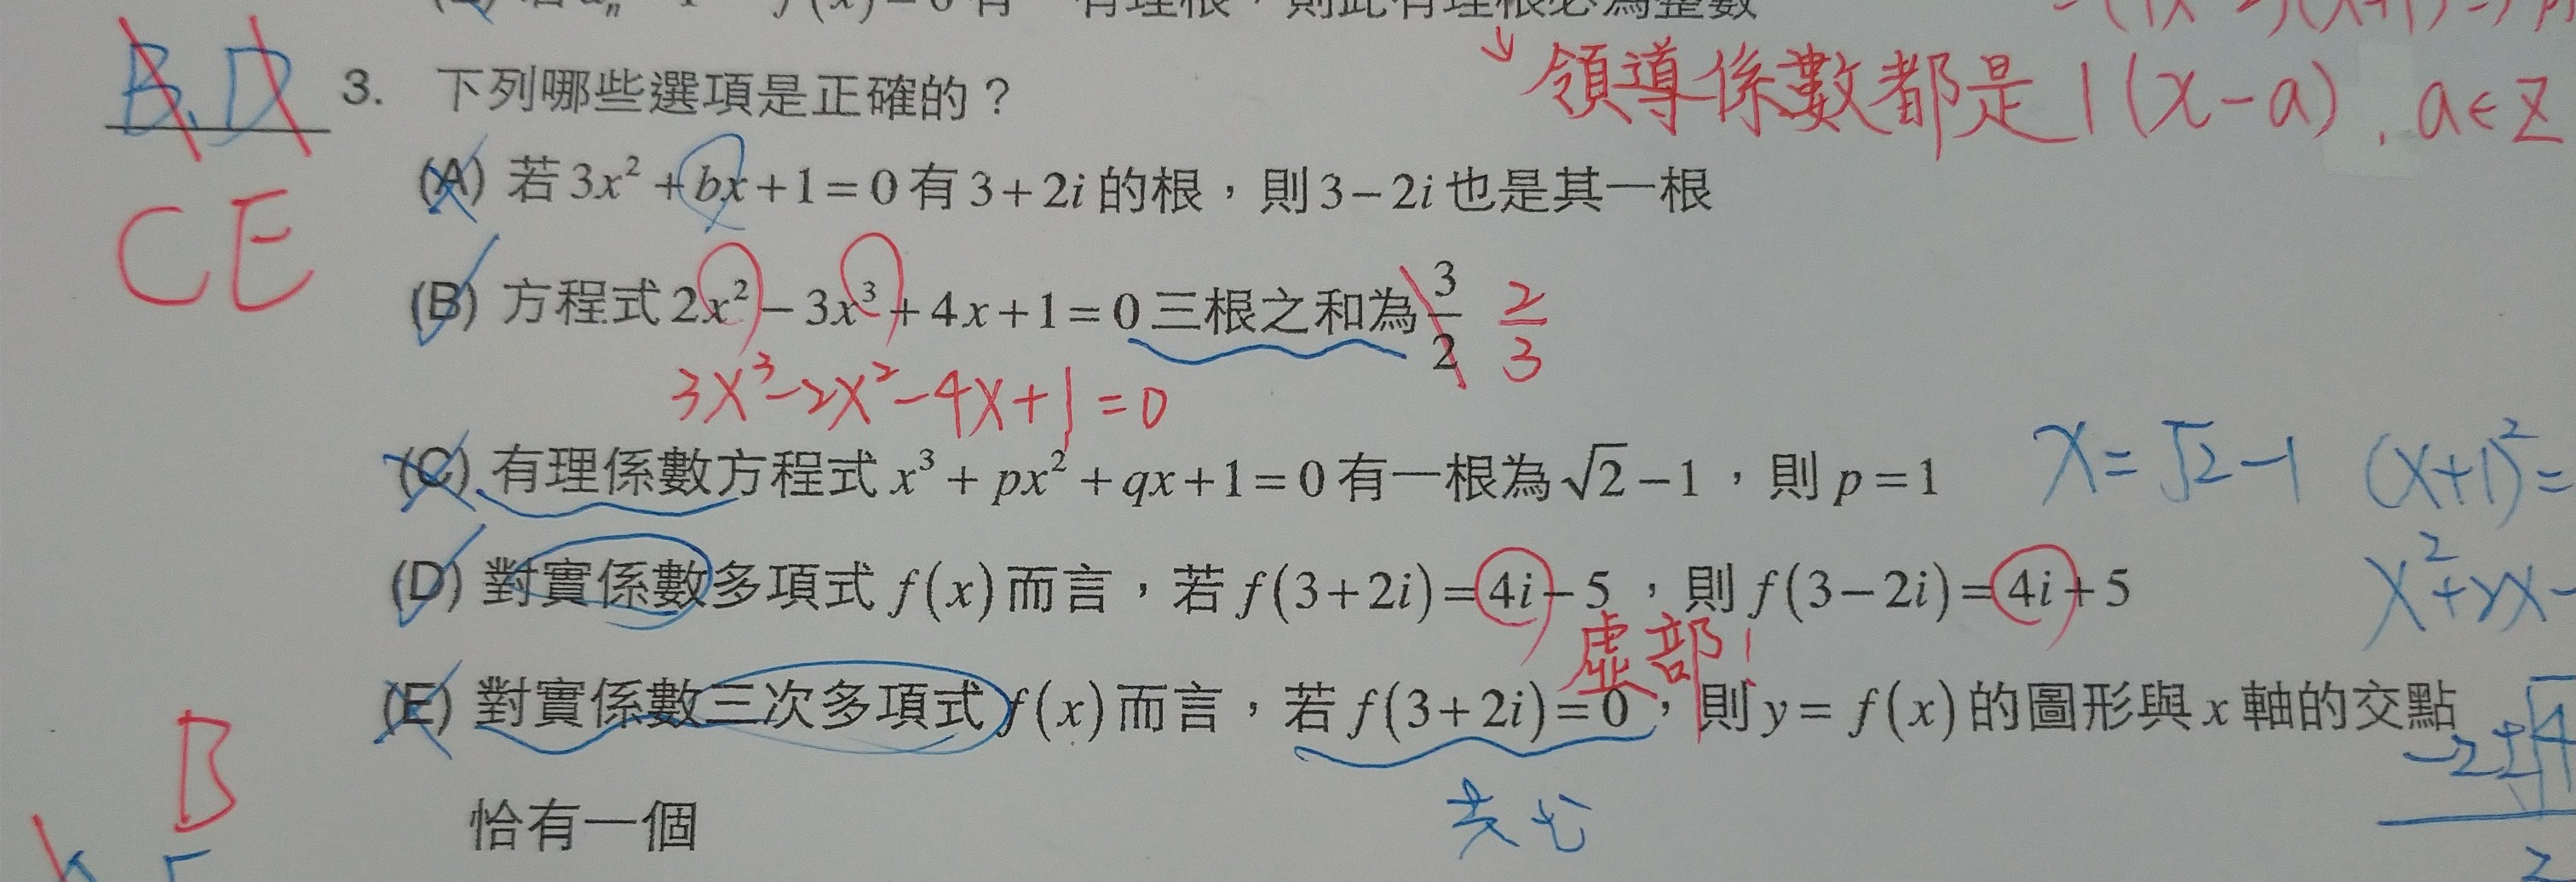 有理根，則此有理根必為整數
領導係數都是1(x-a), a∈Z
B, D
CE
3. 下列哪些選項是正確的？
(A) 若3x²+bx+1=0有3+2i的根，則3-2i也是其一根
(B) 方程式2x²-3x³+4x+1=0三根之和為3/2 2/3
3x³-2x²-4x+1=0
(C) 有理係數方程式x³+px²+qx+1=0有一根為√2-1，則p=1 x=√2-1 (x+1)²=
(D) 對實係數多項式f(x)而言，若f(3+2i)=4i-5，則f(3-2i)=4i+5
虛部!
(E) 對實係數三次多項式f(x)而言，若f(3+2i)=0，則y=f(x)的圖形與x軸的交點
恰有一個
B